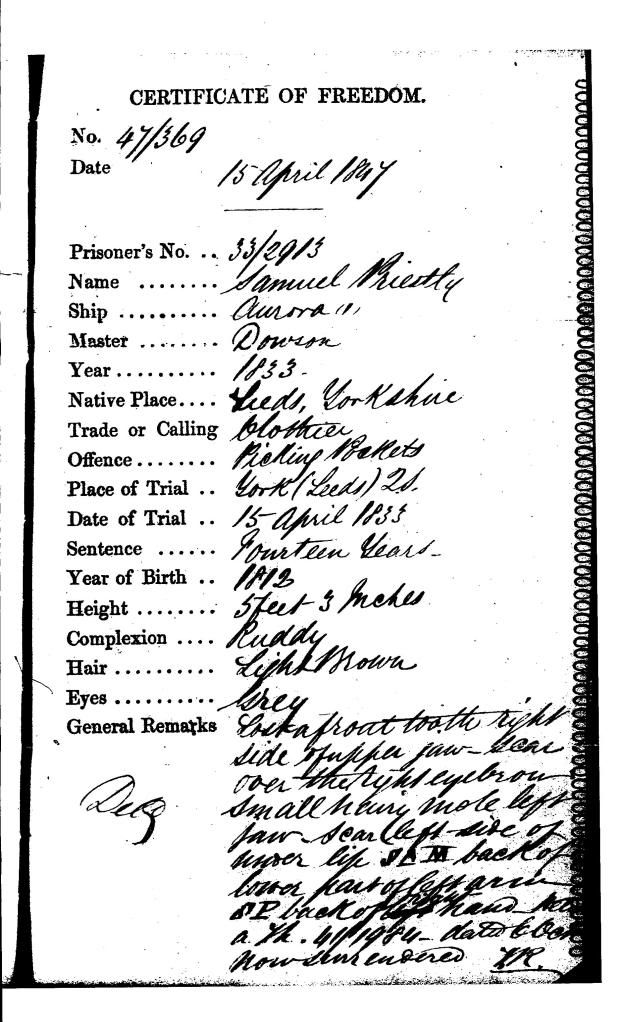 CERTIFICATE OF FREEDOM.
No. 47/369
Date 15 April 1847
Prisoner's No. .. 33/2913
Name ........ Samuel Priestly
Ship .......... Aurora "
Master ........ Dowson
Year .......... 1833
Native Place.... Leeds, Yorkshire
Trade or Calling Clothier
Offence ........ Picking Pockets
Place of Trial .. York (Leeds) 2S.
Date of Trial .. 15 April 1833
Sentence ...... Fourteen Years
Year of Birth .. 1812
Height ........ 5 feet 3 Inches
Complexion .... Ruddy
Hair .......... Light Brown
Eyes .......... Grey
General Remarks Lost a front tooth right
side of upper jaw - Scar
over the right eyebrow
small hairy mole left
jaw - scar left side of
under lip SAM back of
lower part of left arm
SP back of hand
a Th. 41/1984 - dated 6
now surrendered